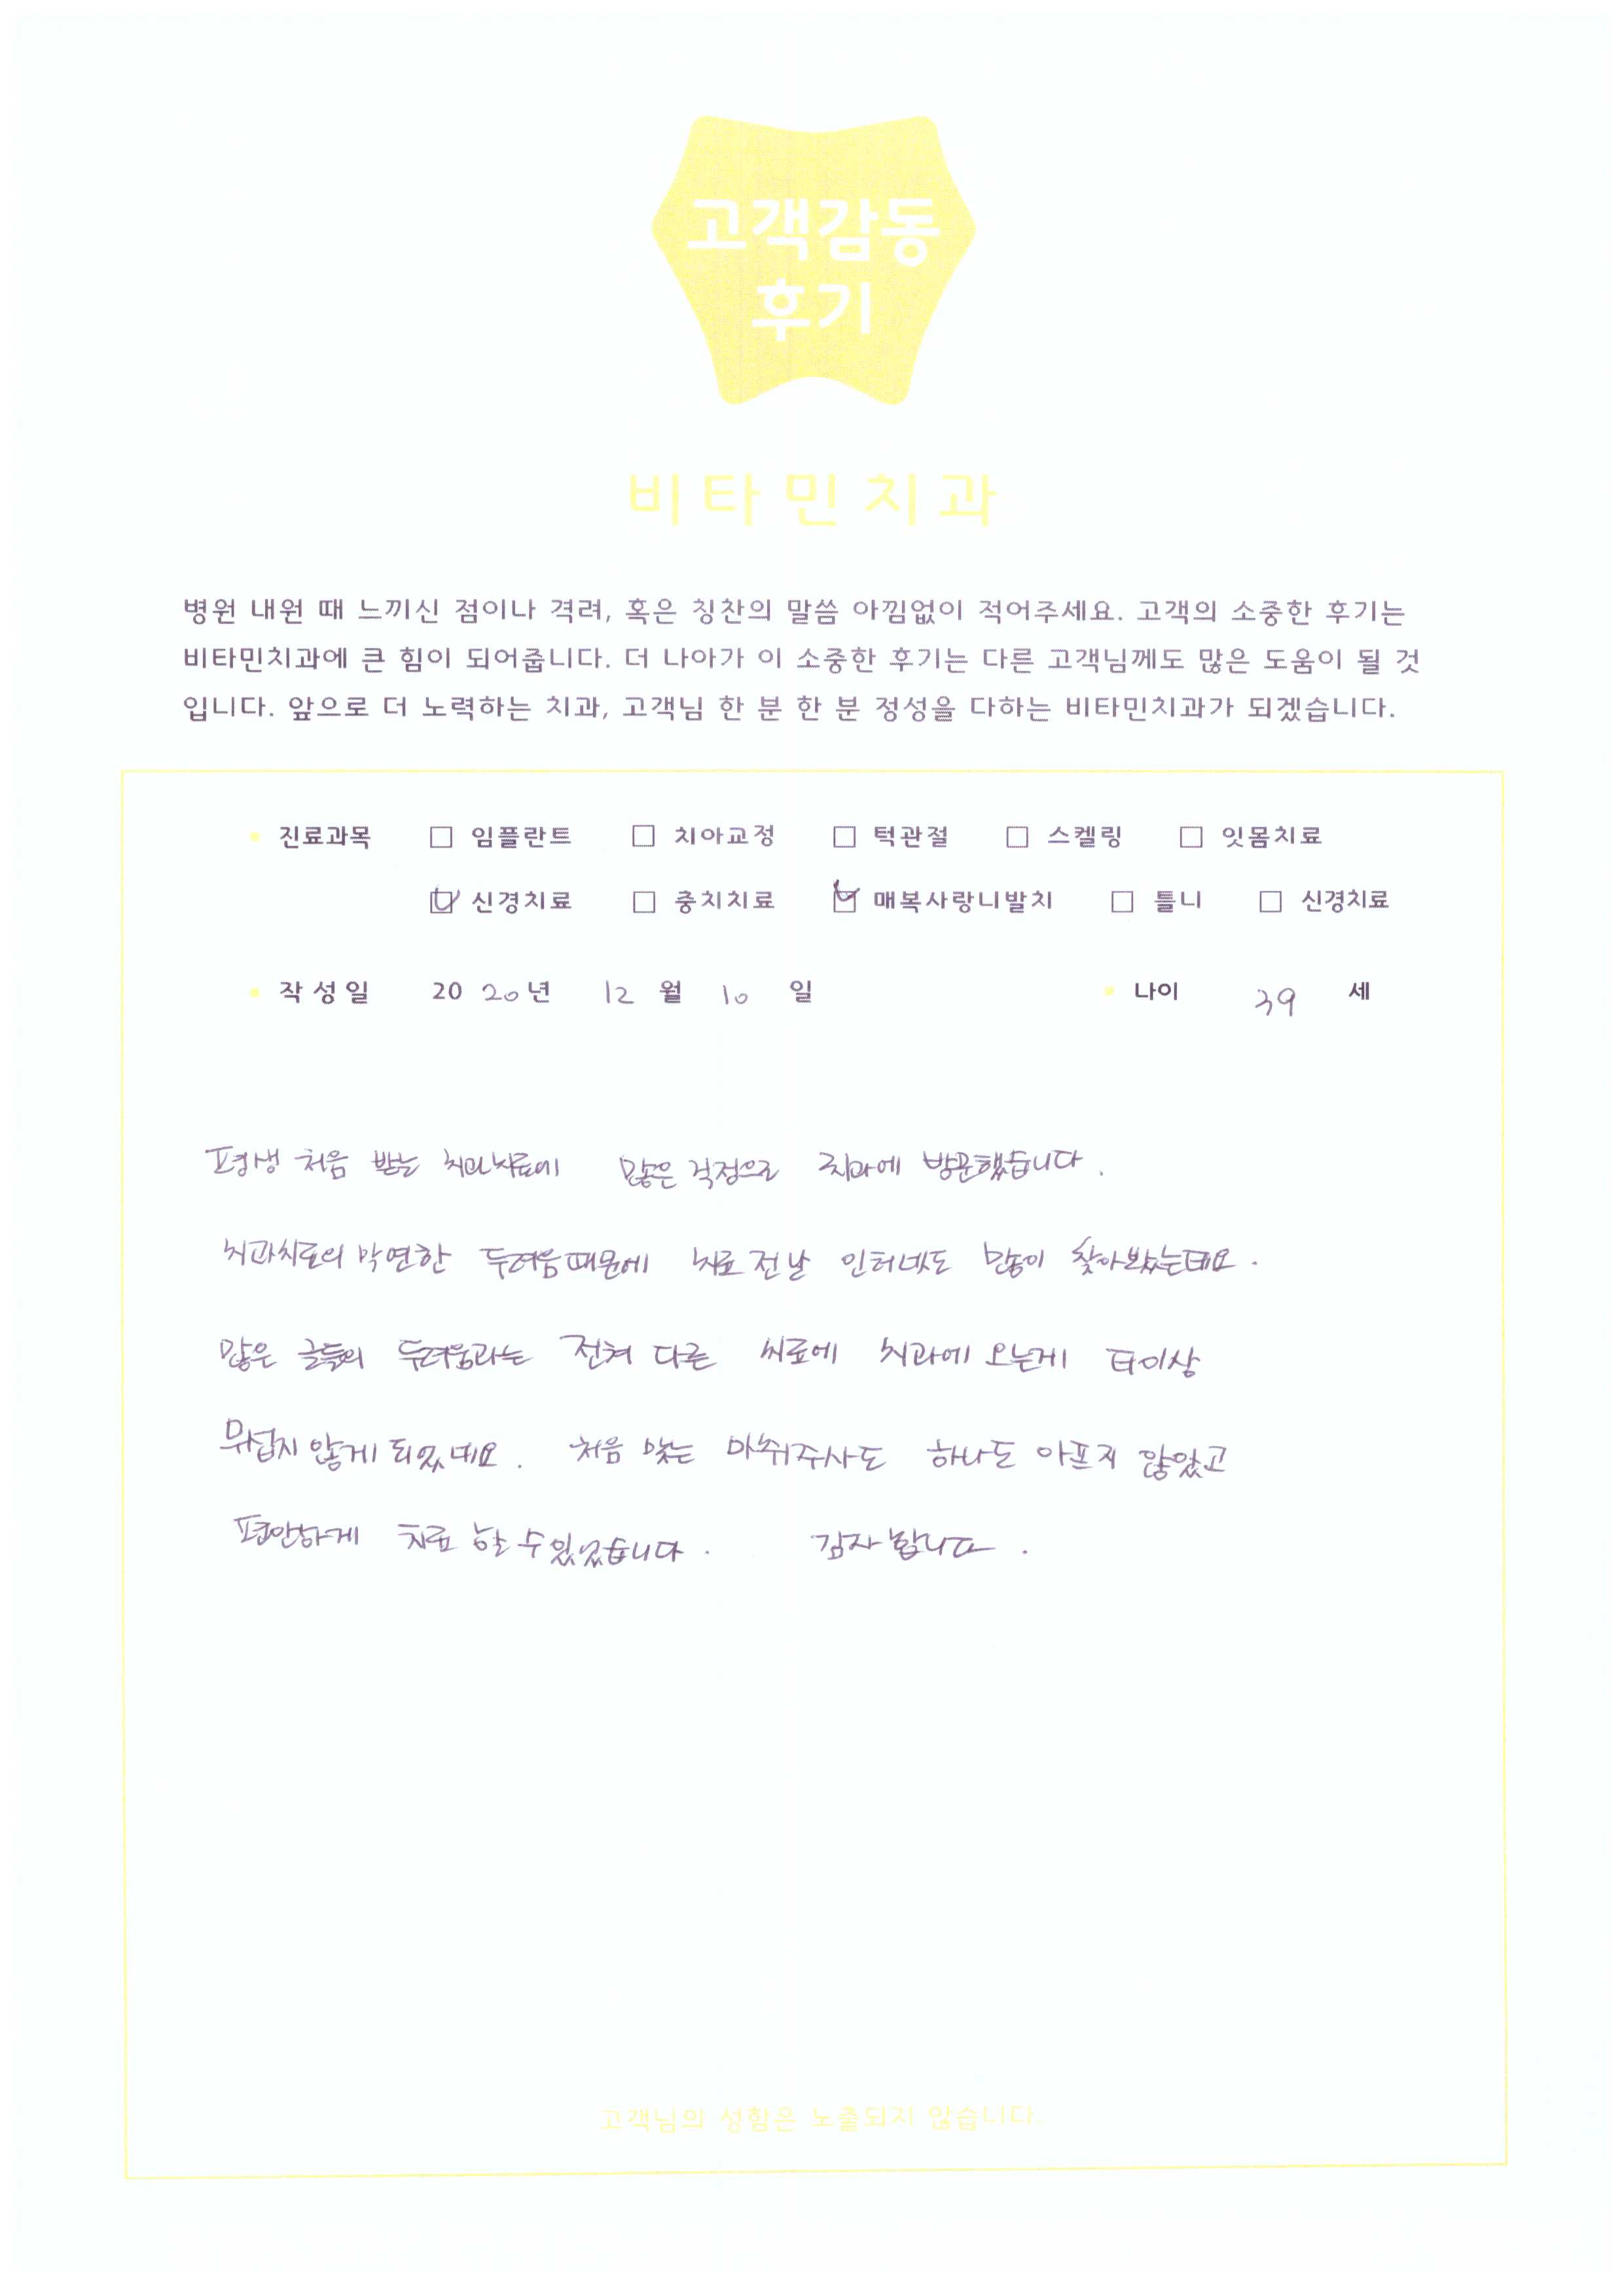 고객감동
후기
비타민치과
병원 내원 때 느끼신 점이나 격려, 혹은 칭찬의 말씀 아낌없이 적어주세요. 고객의 소중한 후기는
비타민치과에 큰 힘이 되어줍니다. 더 나아가 이 소중한 후기는 다른 고객님께도 많은 도움이 될 것
입니다. 앞으로 더 노력하는 치과, 고객님 한 분 한 분 정성을 다하는 비타민치과가 되겠습니다.
진료과목 □ 임플란트 □ 치아교정 □ 턱관절 □ 스켈링 □ 잇몸치료
☑ 신경치료 □ 충치치료 ☑ 매복사랑니발치 □ 틀니 □ 신경치료
작성일 2020년 12월 10일 나이 39 세
평생 처음 받는 치과치료에 많은 걱정으로 치과에 방문했습니다.
치과치료의 막연한 두려움때문에 치료 전날 인터넷도 많이 찾아봤는데요.
많은 글들의 두려움과는 전혀 다른 치료에 치과에 오는게 더이상
무섭지 않게 되었네요. 처음 맞는 마취주사도 하나도 아프지 않았고
편안하게 치료 할 수 있었습니다. 감사합니다.
고객님의 성함은 노출되지 않습니다.